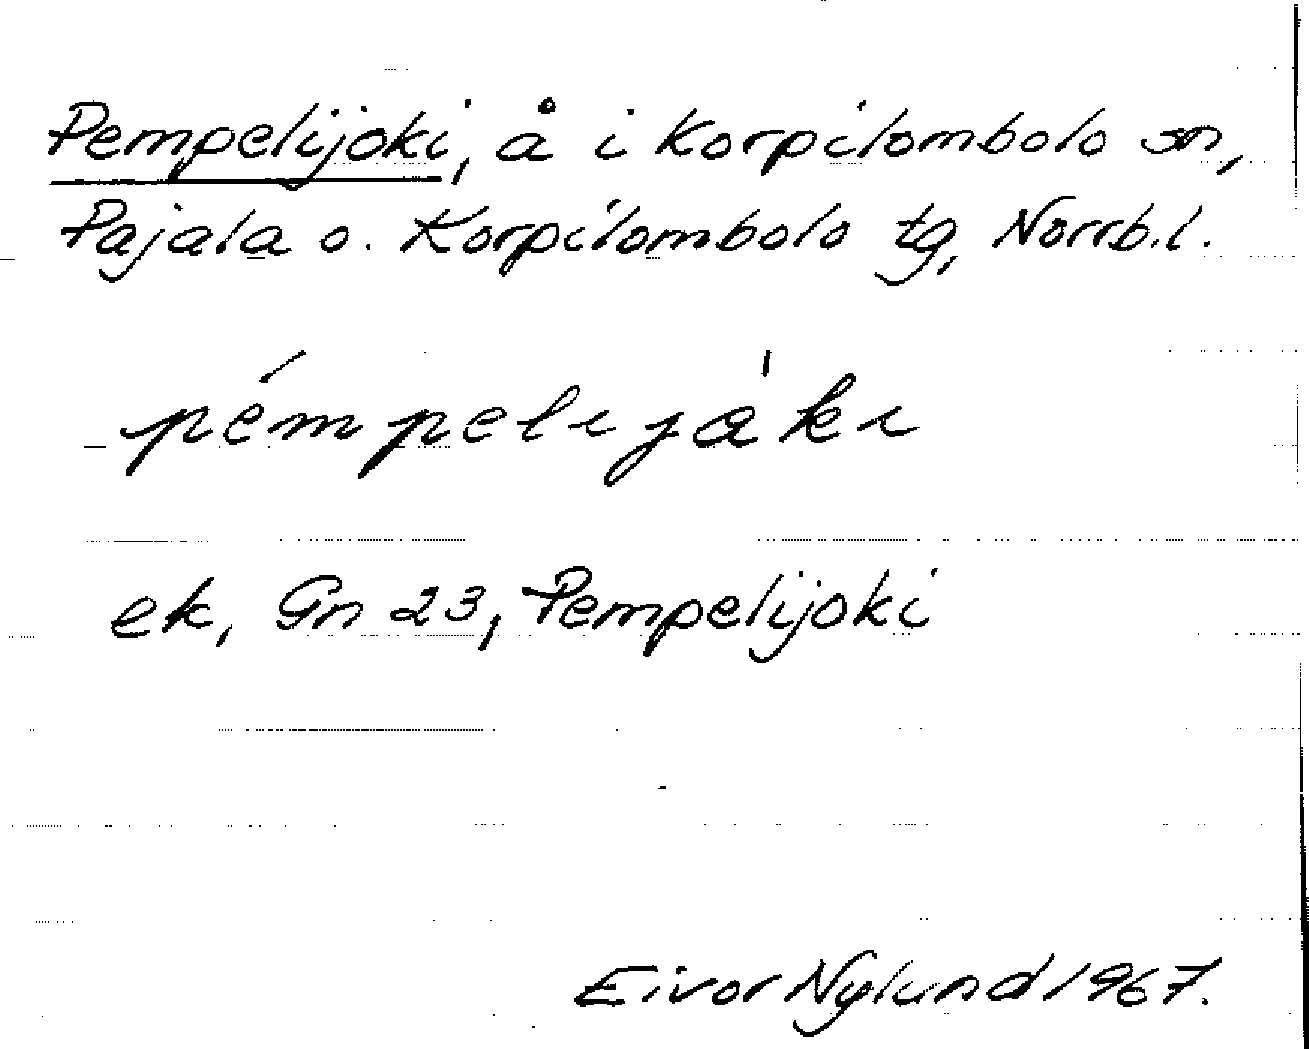 Pempelijoki, å i Korpilombolo sn,
Pajala o. Korpilombolo tg, Norrb.l.
pémpelıjåkı
ek, Gn 23, Pempelijoki
Eivor Nylund 1967.